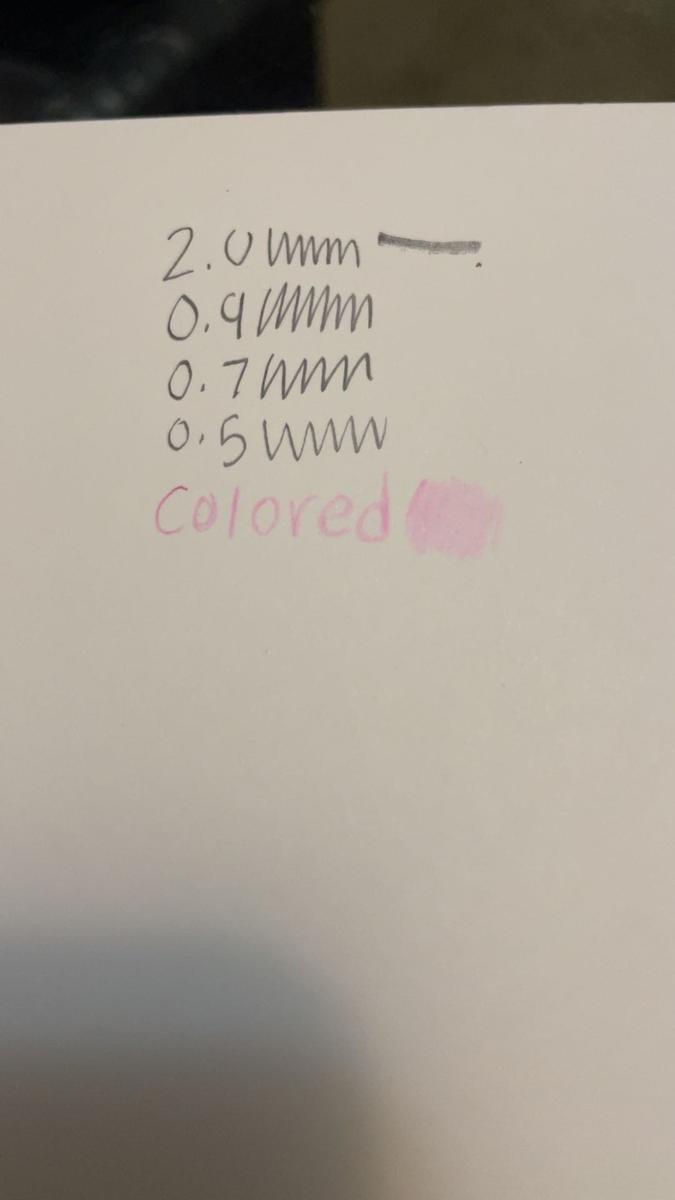 2.0 mm
0.9 mm
0.7 mm
0.5 mm
Colored